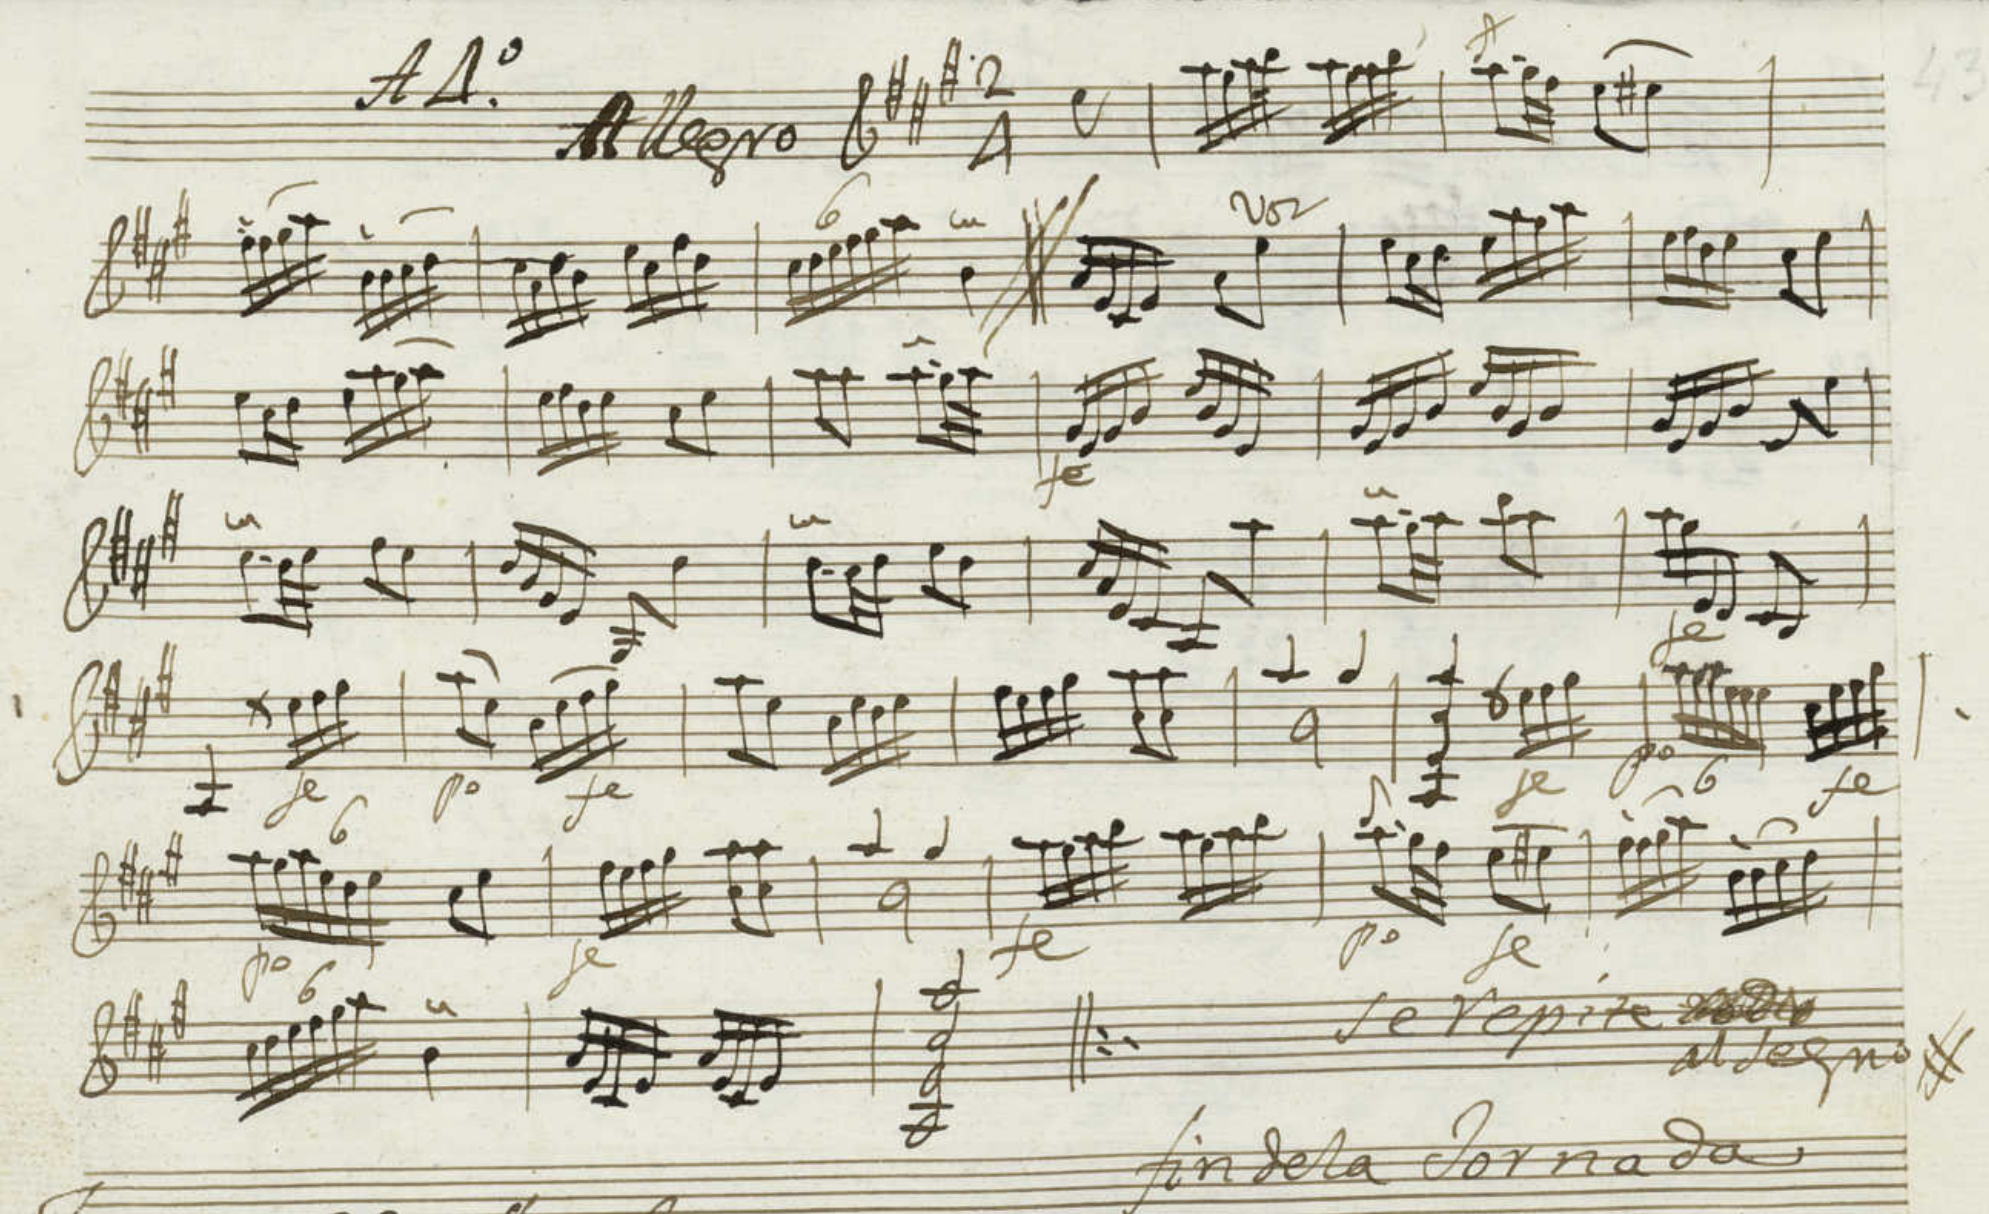 A 4.º
Allegro 2/4
43
6 voz
fe
fe
fe po fe fe po 6 fe
6
po fe fe po fe
6
se repite
al segno
fin de la Jornada